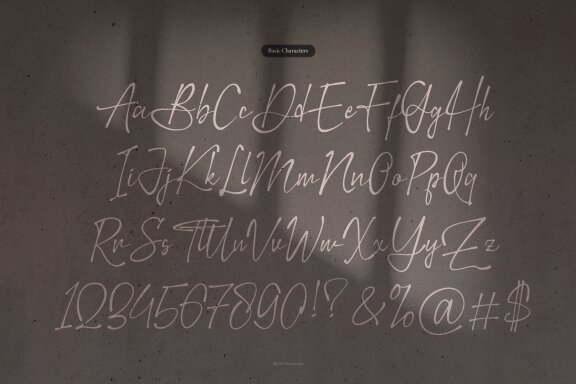 Basic Characters
AaBbCcDdEeFfGgHh
IiJjKkLlMmNnOoPpQq
RrSsTtUuVvWwXxYyZz
1234567890!?&%@#$